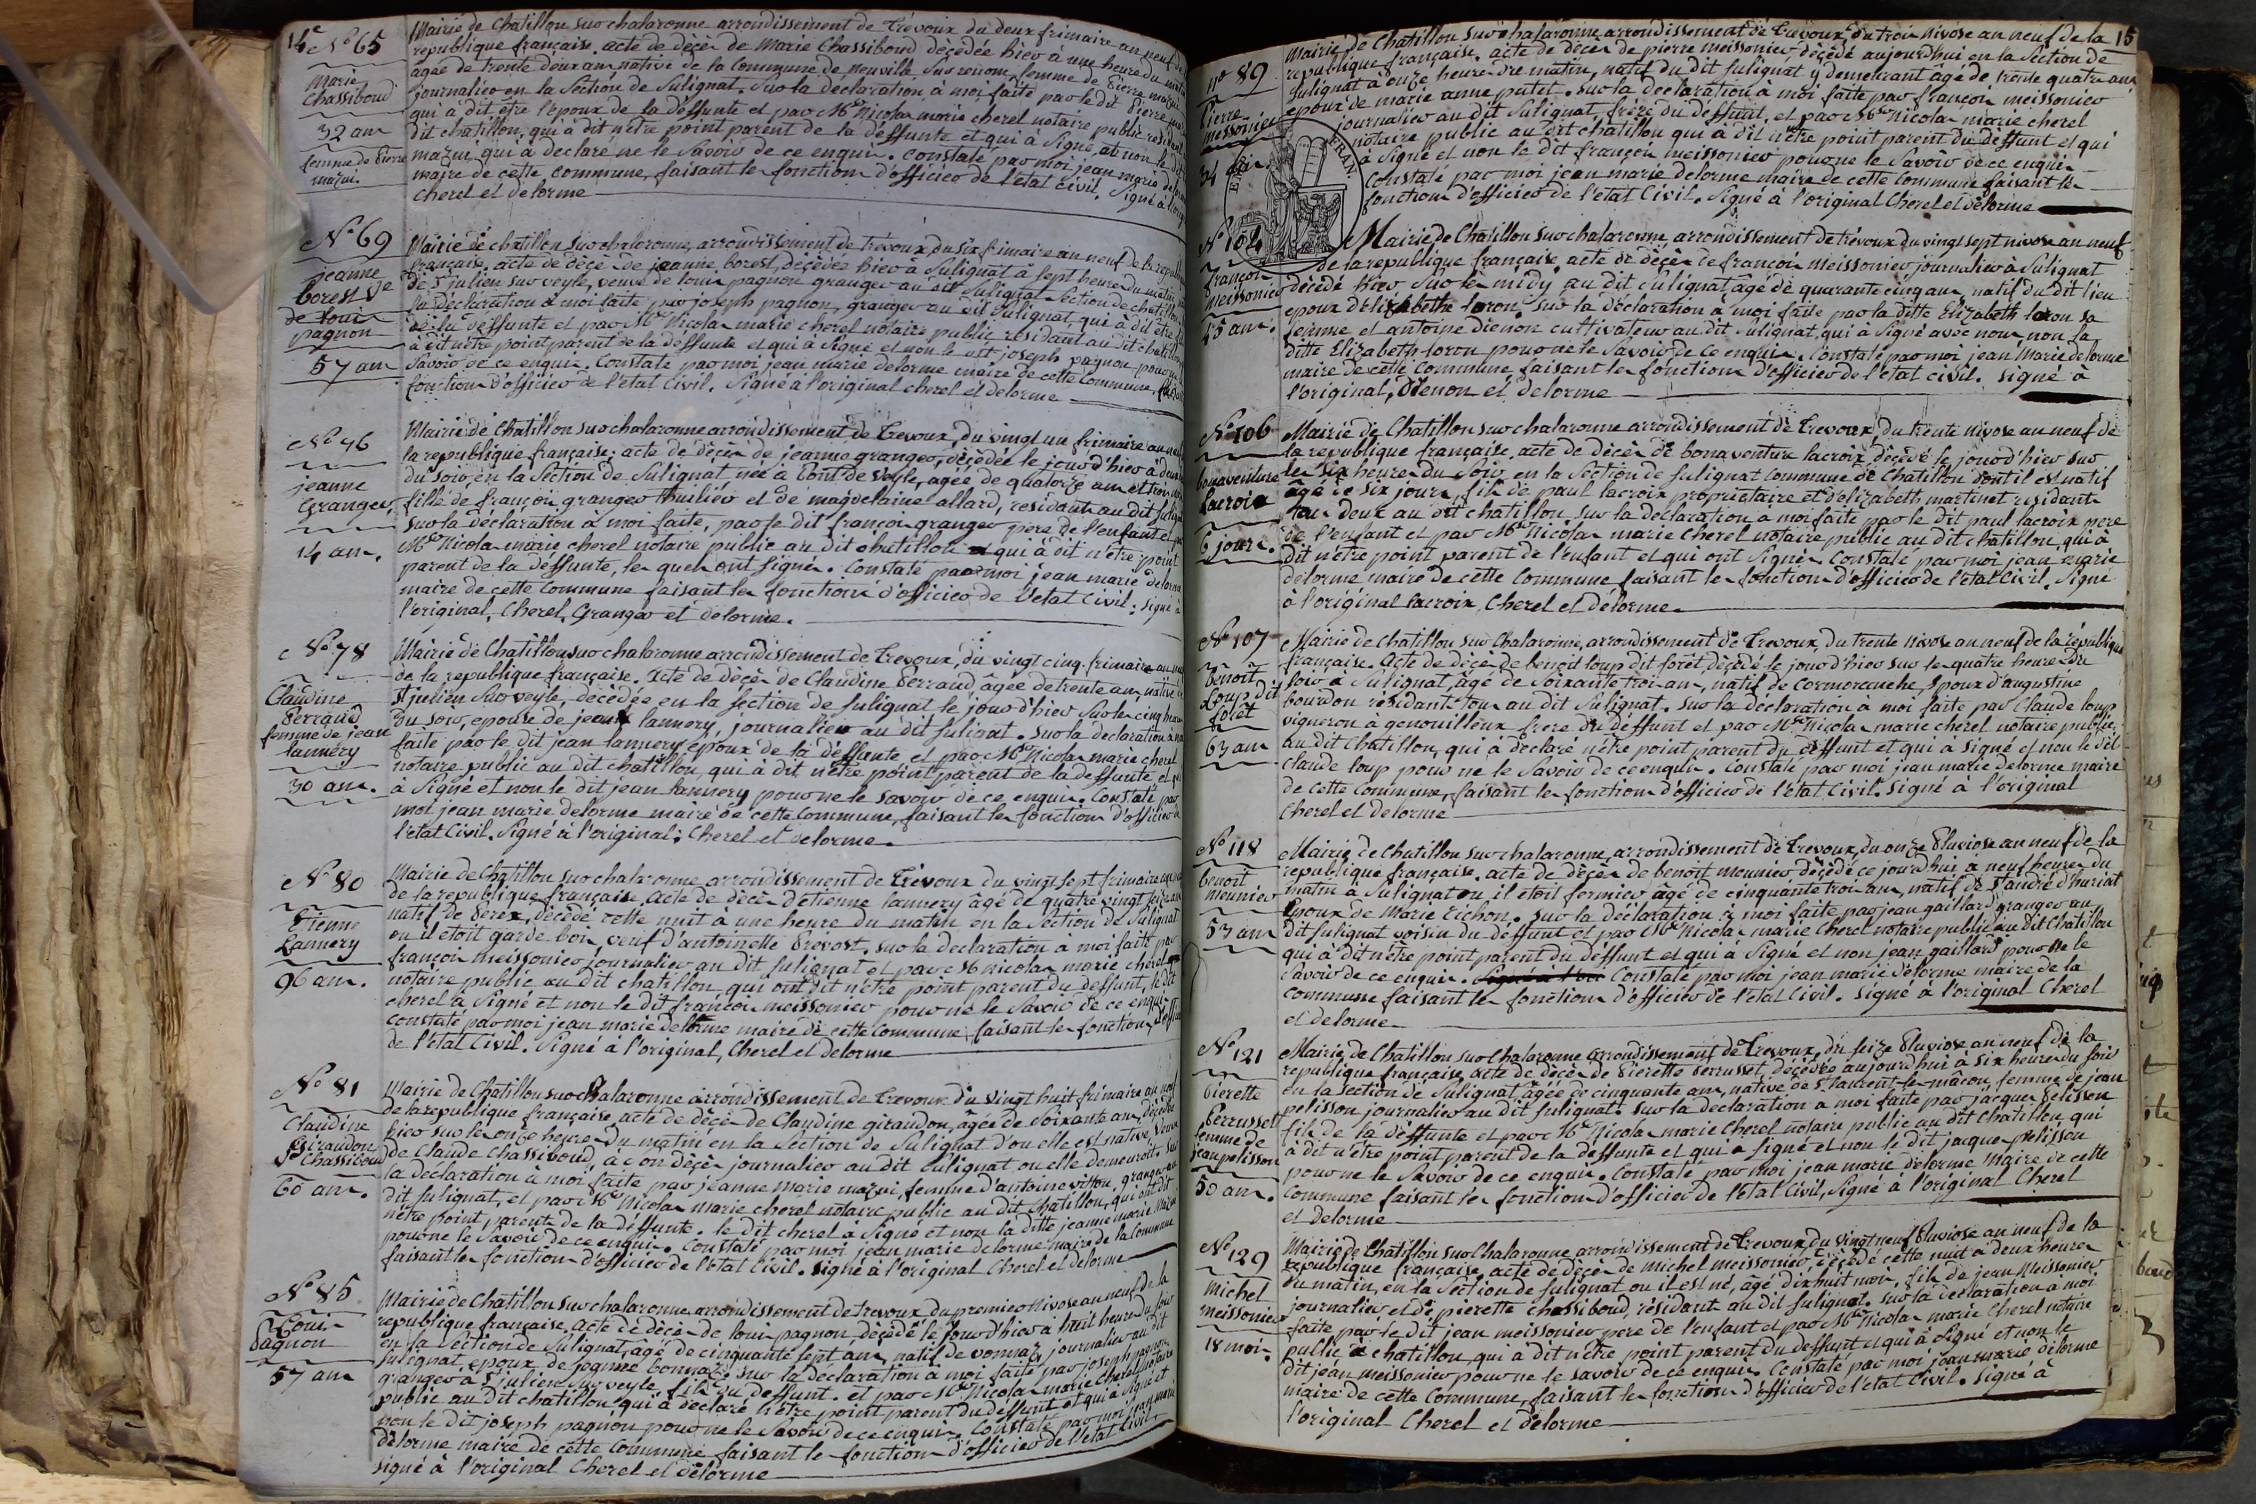 14e
N° 65
Marie
Chassiboud
32 ans
femme de Pierre
mazui.
Mairie de Chatillon sur chalaronne arrondissement de trévoux du deux frimaire an neuf de la
republique française. acte de décès de Marie Chassiboud décédée hier à une heure du matin
agée de trente deux ans native de la Commune de neuville sur renom, femme de Pierre mazui
journalier en la Section de Sulignat. sur la declaration à moi faite par le dit Pierre
qui à dit etre l'epoux de la deffunte et par Me Nicolas marie cherel notaire public residant
dit chatillon, qui à dit n'être point parent de la deffunte et qui à Signé, et non le dit
mazui qui à declaré ne le Savoir de ce enquis. constaté par moi jean marie delorme
maire de cette Commune, faisant les fonctions d'officier de l'état civil. Signé à l'original
cherel et delorme
N° 69
jeanne
borest Ve
de Louis
pagnon
57 ans
Mairie de chatillon sur chalaronne, arrondissement de trévoux du six frimaire an neuf de la republique
française. acte de décès de jeanne borest, décédée hier à Sulignat à sept heures du matin
de St julien sur veyle, veuve de louis pagnon granger au dit Sulignat Section de chatillon
la déclaration à moi faite par joseph pagnon, granger au dit Sulignat, qui à dit être fils
de la deffunte et par Me Nicolas marie cherel notaire public residant au dit chatillon
à dit n'être point parent de la deffunte et qui à Signé et non le dit joseph pagnon pour ne
Savoir de ce enquis. Constaté par moi jean marie delorme maire de cette Commune,
fonctions d'officier de l'état Civil. Signé à l'original cherel et delorme
N° 76
jeanne
Granger,
14 ans.
Mairie de Chatillon sur chalaronne arrondissement de trevoux, du vingt un frimaire an neuf
la republique française: acte de décès de jeanne granger, décédée le jour d'hier à deux
du soir, en la Section de Sulignat née à Pont de Veyle, agée de quatorze ans et trois
fille de françois granger huilier et de magdelaine allard, residants au dit Sulignat
sur la déclaration à moi faite, par le dit françois granger pere de l'enfant et par
Me Nicolas marie cherel notaire public au dit chatillon qui à dit n'etre point
parent de la deffunte, les quels ont signés. Constaté par moi jean marie delorme
maire de cette Commune faisant les fonctions d'officier de l'etat Civil. Signé à
l'original, Cherel, Granger et delorme.
N° 78
Claudine
Perraud
femme de jean
lannery
30 ans.
Mairie de Chatillon sur chalaronne arrondissement de Trevoux, du vingt cinq frimaire an neuf
de la republique française. acte de décès de Claudine Perraud âgée de trente ans, native de
St julien sur veyle, décédée en la section de sulignat le jour d'hier sur les cinq heures
du soir, epouse de jean lannery, journalier au dit sulignat. sur la declaration à moi
faite par le dit jean lannery epoux de la deffunte et par Me Nicolas marie cherel
notaire public au dit chatillon, qui à dit n'etre point parent de la deffunte et qui
à Signé et non le dit jean lannery pour ne le savoir de ce enquis. Constaté par
moi jean marie delorme maire de cette Commune, faisant les fonctions d'officier de
l'etat Civil. Signé à l'original: Cherel et delorme.
N° 80
Etienne
Lannery
96 ans.
Mairie de Chatillon sur chalaronne arrondissement de Trévoux du vingt sept frimaire an neuf
de la republique française, acte de décès d'etienne lannery âgé de quatre vingt seize ans
natif de Perex, décédé cette nuit à une heure du matin en la Section de Sulignat
ou il etoit garde bois, veuf d'antoinette Prevost. sur la declaration à moi faite par
françois meissonier journalier au dit sulignat et par Me Nicolas marie cherel
notaire public au dit chatillon qui ont dit n'etre point parent du deffunt, le dit
cherel à Signé et non le dit françois meissonier pour ne le Savoir de ce enquis
constaté par moi jean marie delorme maire de cette Commune faisant les fonctions d'officier
de l'etat Civil. Signé à l'original, Cherel et delorme
N° 81
Claudine
Giraudon
Ve Chassiboud
60 ans.
Mairie de Chatillon sur Chalaronne arrondissement de Trevoux du vingt huit frimaire an neuf
de la republique française, acte de décès de Claudine giraudon, agée de soixante ans, décédée
hier sur les onze heures du matin en la Section de Sulignat d'ou elle est native, veuve
de Claude Chassiboud, à son décès journalier au dit sulignat ou elle demeuroit. sur
la déclaration à moi faite par jeanne marie mazui, femme d'antoine vitton, granger au
dit sulignat, et par Me Nicolas marie cherel notaire public au dit Chatillon, qui ont dit
n'etre point parents de la deffunte. le dit cherel à Signé et non la ditte jeanne marie mazui
pour ne le Savoir de ce enquis. Constaté par moi jean marie delorme maire de la Commune
faisant les fonctions d'officier de l'etat Civil. signé à l'original Cherel et delorme
N° 85
Louis
Pagnon
57 ans
Mairie de Chatillon sur chalaronne, arrondissement de trevoux, du premier Nivose an neuf de la
republique française, acte de décès de louis pagnon, décédé le jour d'hier à huit heures du soir
en la Section de Sulignat, agé de cinquante sept ans, natif de vonnaz, journalier au dit
sulignat, epoux de jeanne bonnaz, sur la declaration à moi faite par joseph pagnon
granger à St julien sur veyle, fils du deffunt. et par Me Nicolas marie cherel notaire
public au dit chatillon qui à declaré n'etre point parent du deffunt et qui à signé et
non le dit joseph pagnon pour ne le Savoir de ce enquis. Constaté par moi jean marie
delorme maire de cette Commune faisant les fonctions d'officier de l'etat Civil
signé à l'original Cherel et delorme
15
N° 89
Pierre
messonier
34 ans
Mairie de Chatillon sur chalaronne, arrondissement de trévoux, du trois nivose an neuf de la
republique française. acte de décès de pierre meissonier décédé aujourd'hui en la Section de
Sulignat à onze heures du matin, natif du dit sulignat y demeurant âgé de trente quatre ans
epoux de marie anne putet. sur la declaration à moi faite par françois meissonier
journalier au dit Sulignat, frère du deffunt, et par Me Nicolas marie cherel
notaire public au dit chatillon qui à dit n'etre point parent du deffunt et qui
à Signé et non le dit françois meissonier pour ne le Savoir de ce enquis
Constaté par moi jean marie delorme maire de cette Commune faisant les
fonctions d'officier de l'etat Civil. Signé à l'original Cherel et delorme
FRAN
N° 104
françois
meissonier
45 ans.
Mairie de Chatillon sur chalaronne arrondissement de trévoux du vingt sept nivose an neuf
de la republique française acte de décès de françois meissonier journalier à Sulignat
décédé hier sur le midy au dit sulignat âgé de quarante cinq ans, natif du dit lieu
epoux d'elizabeth loron, sur la déclaration à moi faite par la ditte Elizabeth loron sa
femme et antoine dienon cultivateur au dit Sulignat, qui à Signé avec nous, non la
ditte Elizabeth loron pour ne le Savoir de ce enquis. Constaté par moi jean marie delorme
maire de cette Commune faisant les fonctions d'officier de l'etat civil. signé à
l'original, Dienon et delorme
N° 106
bonaventure
Lacroix
6 jours.
Mairie de Chatillon sur chalaronne arrondissement de trevoux, du trente nivose an neuf de
la republique française, acte de décès de bonaventure lacroix, décédé le jour d'hier sur
les six heures du Soir, en la Section de Sulignat Commune de Chatillon dont il est natif
âgé de six jours, fils de paul lacroix propriétaire et d'elizabeth martinet residants
tous deux au dit chatillon, sur la declaration à moi faite par le dit paul lacroix pere
de l'enfant et par Me Nicolas marie cherel notaire public au dit chatillon, qui à
dit n'etre point parent de l'enfant et qui ont Signés. Constaté par moi jean marie
delorme maire de cette Commune faisant les fonctions d'officier de l'etat Civil. Signé
à l'original Lacroix, Cherel et delorme
N° 107
benoit
Loup dit
forêt
63 ans
Mairie de chatillon sur Chalaronne, arrondissement de Trevoux, du trente Nivose an neuf de la république
française. Acte de décès de benoit loup dit forêt décédé le jour d'hier sur les quatre heures du
soir à Sulignat, âgé de soixante trois ans, natif de Cormoranche, Epoux d'augustine
bourdon résidants tous au dit Sulignat. sur la déclaration à moi faite par Claude loup
vigneron à genouilleux, frere du deffunt et par Me Nicolas marie cherel notaire public
au dit chatillon, qui à declaré n'être point parent du deffunt et qui à signé et non le dit
claude loup pour ne le Savoir de ce enquis. Constaté par moi jean marie delorme maire
de cette Commune, faisant les fonctions d'officier de l'etat Civil. signé à l'original
Cherel et delorme
N° 118
benoit
Meunier
53 ans
Mairie de Chatillon sur chalaronne, arrondissement de Trevoux, du onze Pluviose an neuf de la
republique française. acte de décès de benoit meunier décédé ce jourd'hui à neuf heures du
matin à Sulignat ou il etoit fermier âgé de cinquante trois ans, natif de St andré d'huriat
Epoux de Marie Tichon. sur la déclaration à moi faite par jean gaillard granger au
dit sulignat voisin du deffunt et par Me Nicolas marie Cherel notaire public au dit Chatillon
qui à dit n'être point parent du deffunt et qui à Signé et non jean gaillard pour ne le
Savoir de ce enquis. Constaté par moi jean marie delorme maire de la
commune faisant les fonctions d'officier de l'etat Civil. signé à l'original Cherel
et delorme
N° 121
Pierette
Perrusset
femme de
jean pelisson
50 ans.
Mairie de Chatillon sur Chalaronne arrondissement de Trevoux, du seize Pluviose an neuf de la
republique française acte de décès de Pierette Perrusset, décédée aujourd'hui à six heures du soir
en la section de Sulignat, âgée de cinquante ans, native de St laurent-les-mâcon, femme de jean
pelisson journalier au dit Sulignat. sur la déclaration à moi faite par jacques Pelisson
fils de la deffunte et par Me Nicolas marie Cherel notaire public au dit Chatillon, qui
à dit n'etre point parent de la deffunte et qui à Signé et non le dit jacques pelisson
pour ne le Savoir de ce enquis. Constaté par moi jean marie delorme Maire de cette
Commune faisant les fonctions d'officier de l'etat Civil, Signé à l'original Cherel
et delorme
N° 129
Michel
Meissonier
18 mois.
Mairie de Chatillon sur Chalaronne, arrondissement de Trevoux, du vingt neuf Pluviose an neuf de la
republique française, acte de décès de michel meissonier, décédé cette nuit à deux heures
du matin, en la Section de Sulignat ou il est né, âgé dix huit mois, fils de jean Meissonier
journalier et de pierette chassiboud, résidant au dit sulignat. sur la déclaration à moi
faite par le dit jean meissonier pere de l'enfant et par Me Nicolas marie Cherel notaire
public à chatillon, qui à dit n'etre point parent du deffunt et qui à Signé et non le
dit jean meissonier pour ne le savoir de ce enquis. Constaté par moi jean marie delorme
maire de cette Commune, faisant les fonctions d'officier de l'etat Civil. Signé à
l'original Cherel et delorme